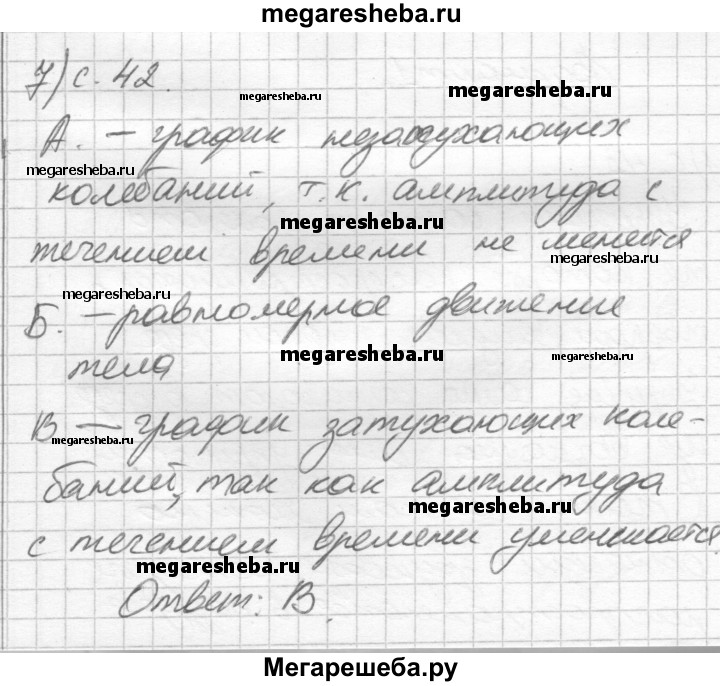 megaresheba.ru
7) с. 42.
megaresheba.ru
megaresheba.ru
А. – график незатухающих
megaresheba.ru
колебаний, т.к. амплитуда с
megaresheba.ru
течением времени не меняется
megaresheba.ru
megaresheba.ru
Б. – равномерное движение
megaresheba.ru
megaresheba.ru
тела
В – график затухающих коле-
megaresheba.ru
баний, так как амплитуда
megaresheba.ru
с течением времени уменьшается.
megaresheba.ru
Ответ: В.
Мегарешеба.ру